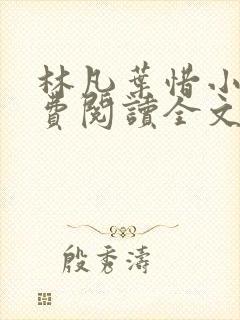 林凡葉惜小
費閱讀全文
殷秀濤